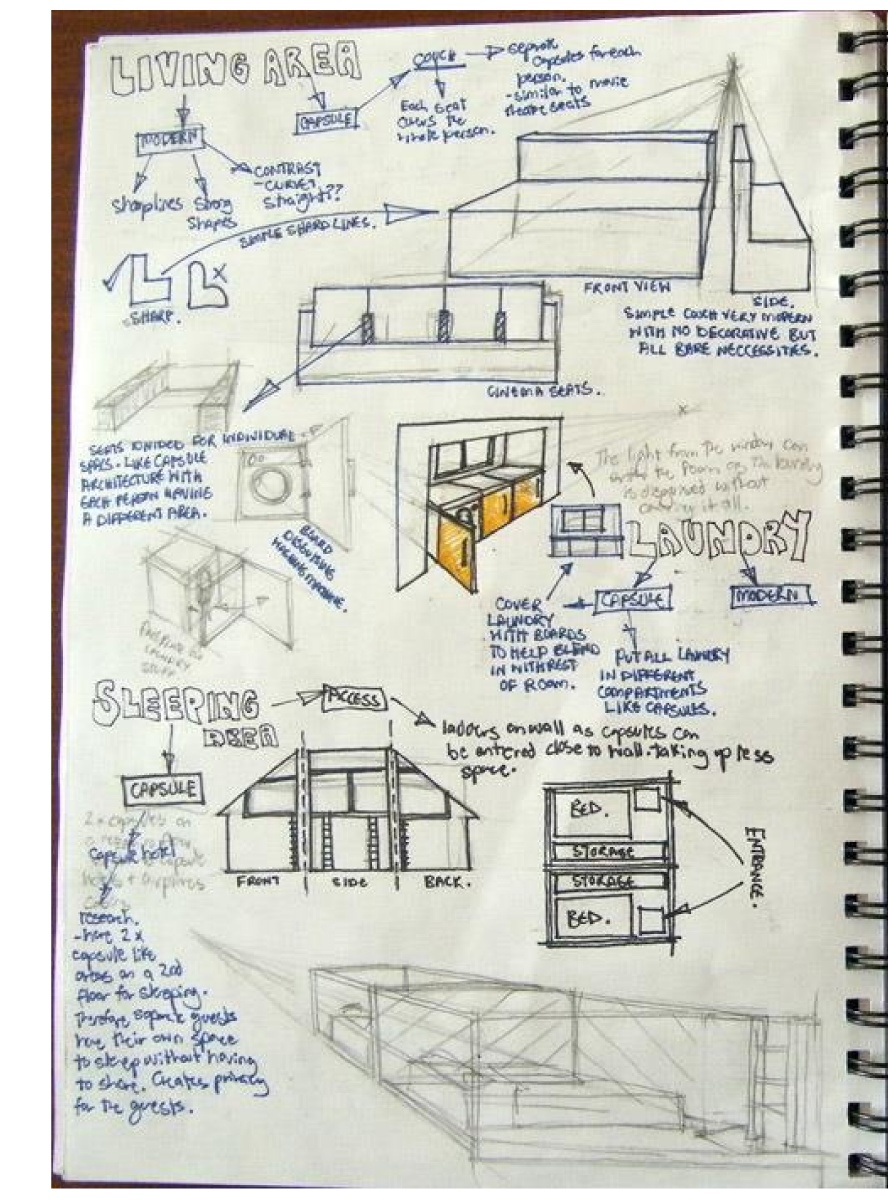 LIVING AREA
MODERN
Sharplines Strong
Shapes
CONTRAST
- CURVES,
Straight??
CAPSULE
COUCH
Each seat
covers the
whole person.
separate
capsules for each
person.
- similar to movie
theatre seats
SIMPLE SHARD LINES.
SHARP.
FRONT VIEW
SIDE.
SIMPLE COUCH VERY MODERN
WITH NO DECORATIVE BUT
ALL BARE NECCESSITIES.
CINEMA SEATS.
SEATS DIVIDED FOR INDIVIDUAL
SPACS. LIKE CAPSULE
ARCHITECTURE WITH
EACH PERSON HAVING
A DIFFERENT AREA.
BOARD
DISGUISING
WASHING MACHINE.
LAUNDRY
STUFF
The light from the window can
the room so the laundry
is disguised without
it all.
LAUNDRY
CAPSULE
MODERN
COVER
LAUNDRY
WITH BOARDS
TO HELP BLEND
IN WITH REST
OF ROOM.
PUT ALL LAUNDRY
IN DIFFERENT
COMPARTMENTS
LIKE CAPSULES.
SLEEPING
AREA
ACCESS
ladders on wall as capsules can
be entered close to wall-taking up less
space.
CAPSULE
2 x capsules on
capsule hotel
capsule
hotels + airplanes
research.
- have 2 x
capsule like
areas on a 2nd
floor for sleeping.
Therefore separate guests
have their own space
to sleep without having
to share. Creates privacy
for the guests.
FRONT
SIDE
BACK.
BED.
STORAGE
STORAGE
BED.
ENTRANCE.